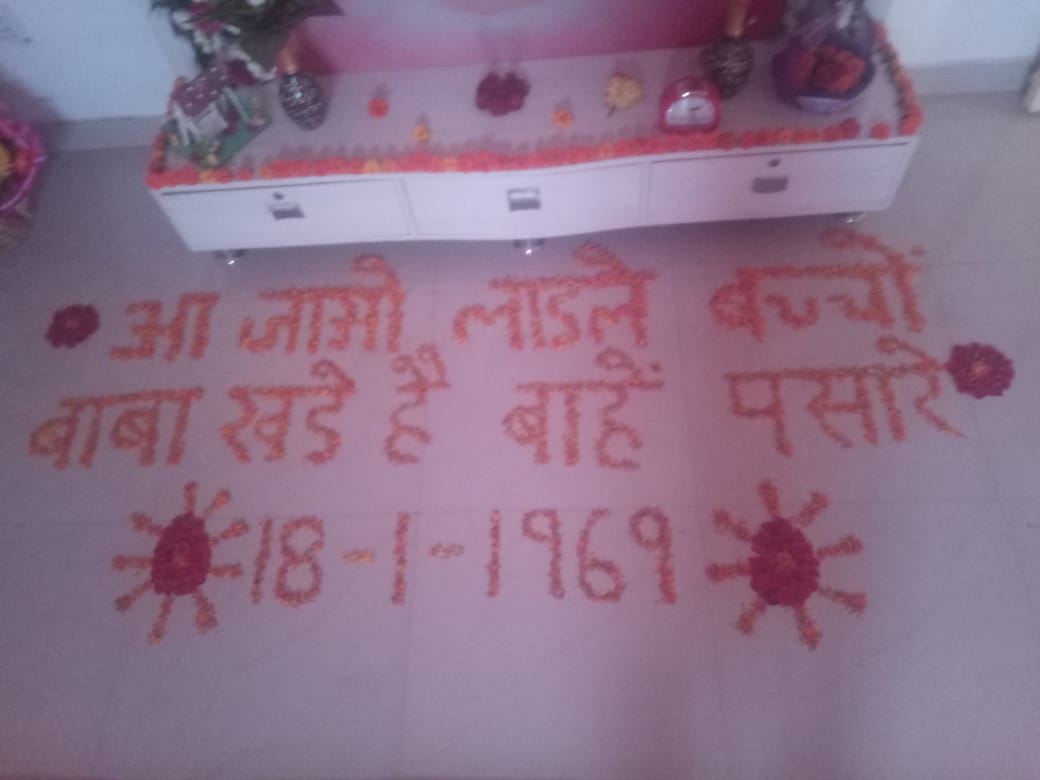 आ जाओ लाडले बच्चों
बाबा खडे है बाहें पसारे
18-1-1969